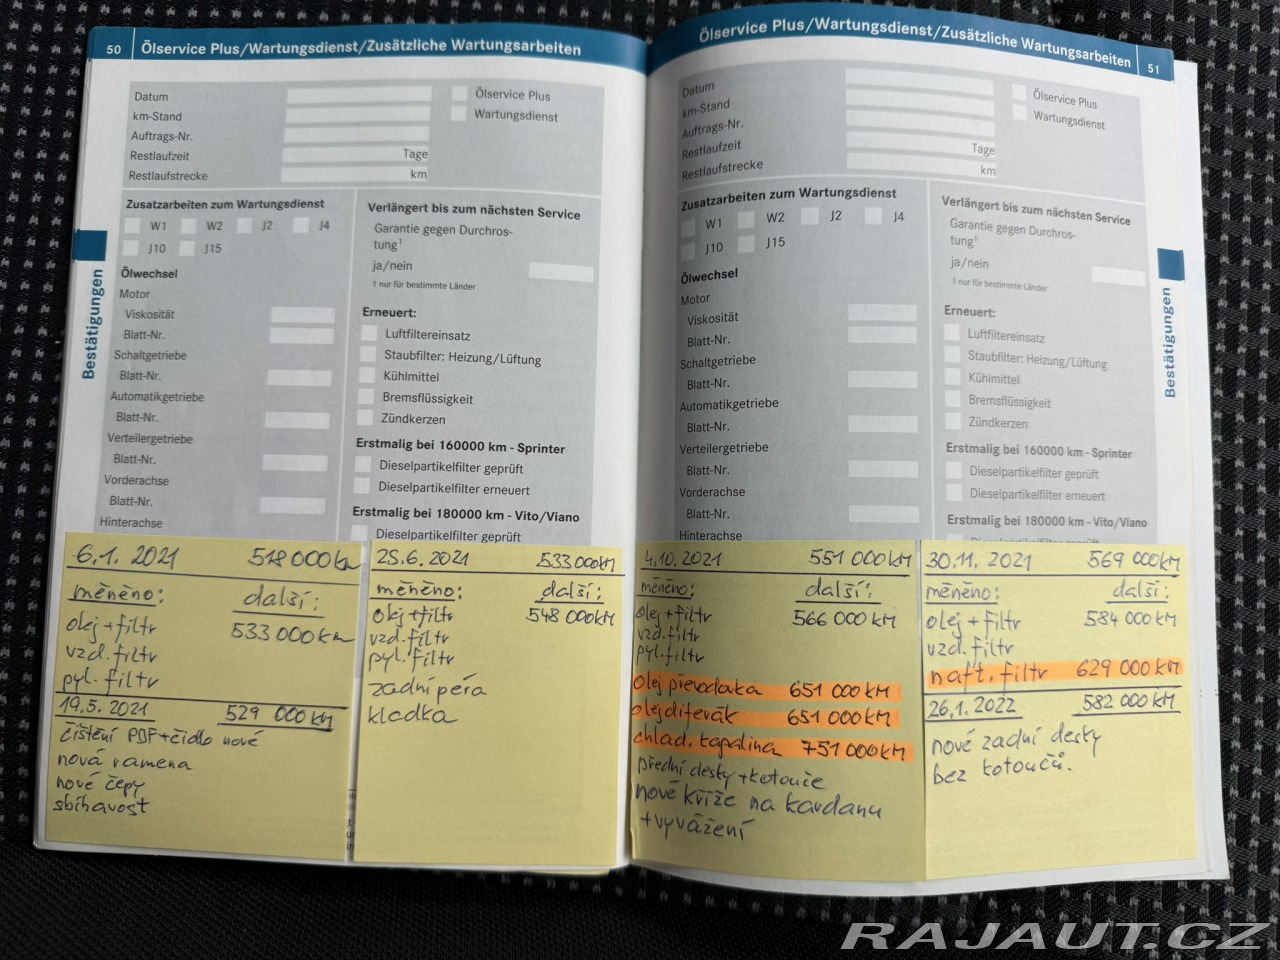 50 Ölservice Plus/Wartungsdienst/Zusätzliche Wartungsarbeiten
Datum
km-Stand
Auftrags-Nr.
Restlaufzeit Tage
Restlaufstrecke km
Ölservice Plus
Wartungsdienst
Zusatzarbeiten zum Wartungsdienst
W1 W2 J2 J4
J10 J15
Ölwechsel
Motor
Viskosität
Blatt-Nr.
Schaltgetriebe
Blatt-Nr.
Automatikgetriebe
Blatt-Nr.
Verteilergetriebe
Blatt-Nr.
Vorderachse
Blatt-Nr.
Hinterachse
Verlängert bis zum nächsten Service
Garantie gegen Durchros-
tung¹
ja/nein
1 nur für bestimmte Länder
Erneuert:
Luftfiltereinsatz
Staubfilter: Heizung/Lüftung
Kühlmittel
Bremsflüssigkeit
Zündkerzen
Erstmalig bei 160000 km - Sprinter
Dieselpartikelfilter geprüft
Dieselpartikelfilter erneuert
Erstmalig bei 180000 km - Vito/Viano
Dieselpartikelfilter geprüft
Bestätigungen
6.1. 2021 518 000km
měněno: další:
olej+filtr 533 000km
vzd.filtr
pyl.filtr
19.5. 2021 529 000KM
čištění PDF+čidlo nové
nová ramena
nové čepy
sbíhavost
25.6. 2021 533 000KM
měněno: další:
olej+filtr 548 000KM
vzd.filtr
pyl.filtr
zadní péra
kladka
Ölservice Plus/Wartungsdienst/Zusätzliche Wartungsarbeiten 51
Datum
km-Stand
Auftrags-Nr.
Restlaufzeit Tage
Restlaufstrecke km
Ölservice Plus
Wartungsdienst
Zusatzarbeiten zum Wartungsdienst
W1 W2 J2 J4
J10 J15
Ölwechsel
Motor
Viskosität
Blatt-Nr.
Schaltgetriebe
Blatt-Nr.
Automatikgetriebe
Blatt-Nr.
Verteilergetriebe
Blatt-Nr.
Vorderachse
Blatt-Nr.
Hinterachse
Verlängert bis zum nächsten Service
Garantie gegen Durchros-
tung¹
ja/nein
1 nur für bestimmte Länder
Erneuert:
Luftfiltereinsatz
Staubfilter: Heizung/Lüftung
Kühlmittel
Bremsflüssigkeit
Zündkerzen
Erstmalig bei 160000 km - Sprinter
Dieselpartikelfilter geprüft
Dieselpartikelfilter erneuert
Erstmalig bei 180000 km - Vito/Viano
Bestätigungen
4.10. 2021 551 000KM
měněno: další:
olej+filtr 566 000KM
vzd.filtr
pyl.filtr
olej převodovka 651 000KM
olej diferák 651 000KM
chlad.kapalina 751 000KM
přední desky+kotouče
nové kříže na kardanu
+vyvážení
30.11. 2021 569 000KM
měněno: další:
olej+filtr 584 000KM
vzd.filtr
naft.filtr 629 000KM
26.1. 2022 582 000KM
nové zadní desky
bez kotoučů.
RAJAUT.CZ